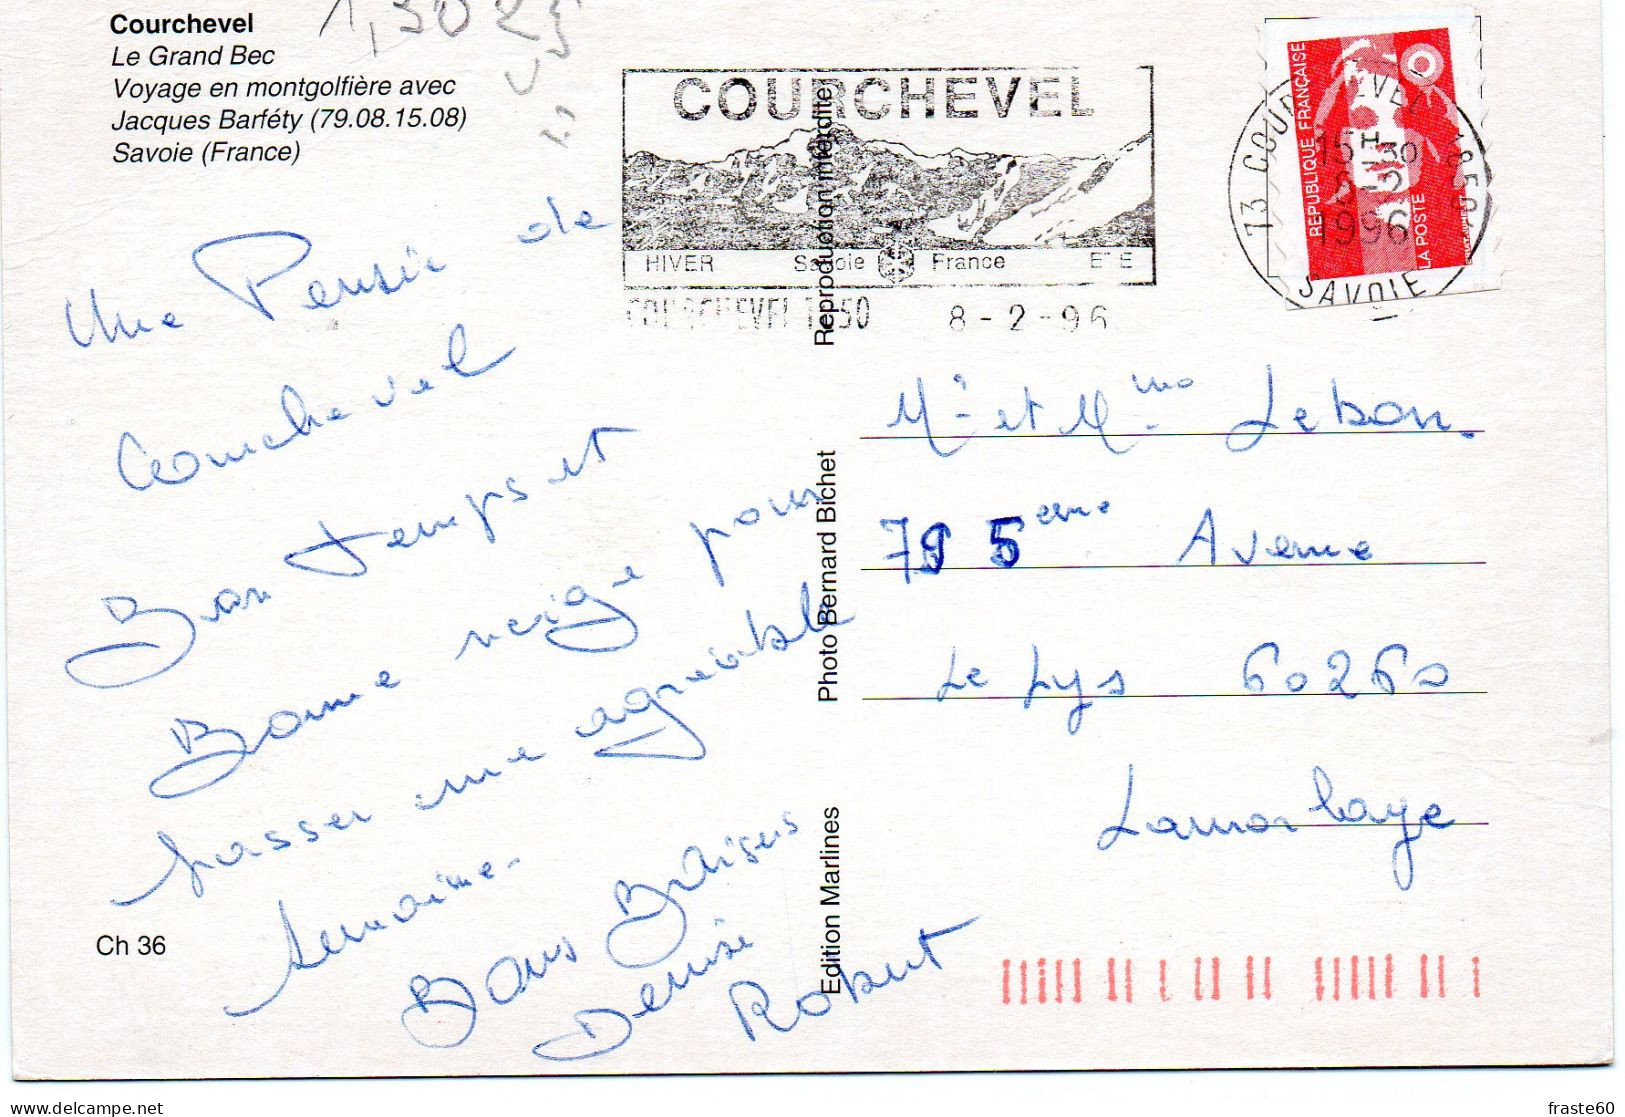 Courchevel
Le Grand Bec
Voyage en montgolfière avec
Jacques Barféty (79.08.15.08)
Savoie (France)
COURCHEVEL
HIVER Savoie France ETE
COURCHEVEL 1850 8-2-96
73 COURCHEVEL 1850
15H30
8-2
1996
SAVOIE
REPUBLIQUE FRANÇAISE
LA POSTE
Une Pensée de
Courchevel
Bon temps et
Bonne neige pour
passer une agréable
semaine.
Bons Baisers
Denise
Robert
Reproduction interdite
Photo Bernard Bichet
Edition Marlines
Mr et Mme Lebon.
79 5eme Avenue
Le Lys 60260
Lamorlaye
Ch 36
fraste60